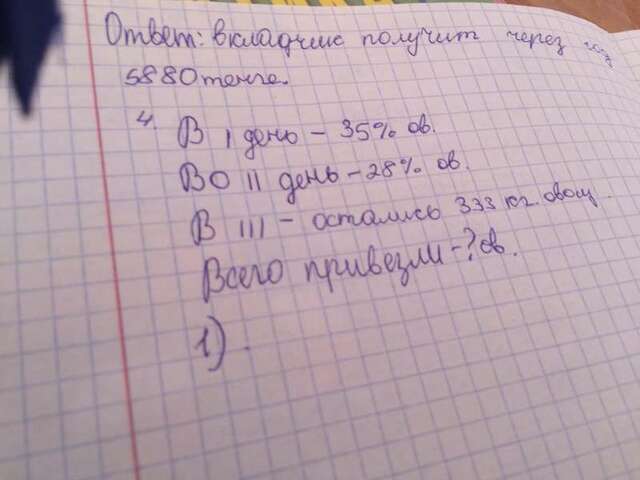 Ответ: вкладчик получит через год
5880 тенге.
4. В I день – 35% ов.
Во II день – 28% ов.
В III – остались 333 кг овощ.
Всего привезли – ? ов.
1).